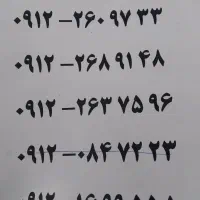 ۰۹۱۲ –۲۶۰ ۹۷ ۳۳
۰۹۱۲ –۲۶۸ ۹۱ ۴۸
۰۹۱۲ –۲۶۳ ۷۵ ۹۶
۰۹۱۲ –۰۸۴ ۷۲ ۲۳
۰۹۱۲